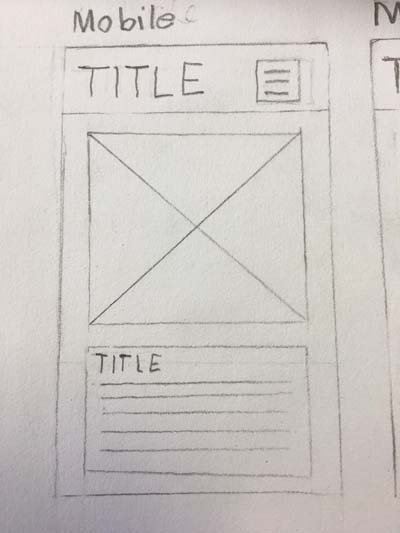 Mobile
M
TITLE
T
TITLE